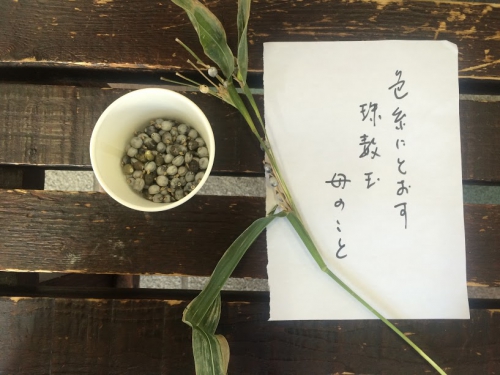 色糸にとおす
珠数玉
母のこと